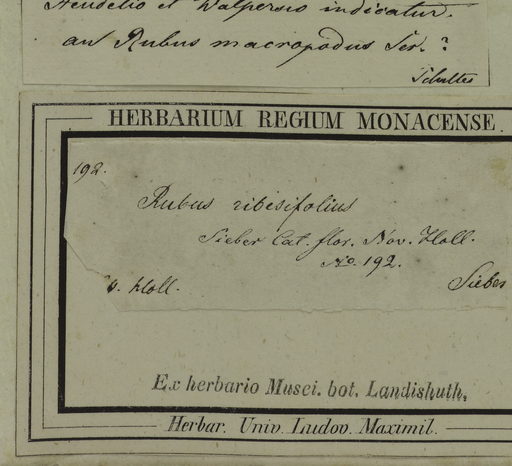 Steudelio et Walpersio indicatur.
an Rubus macropodus Ser.?
Schultes
HERBARIUM REGIUM MONACENSE.
192.
Rubus ribesifolius
Sieber Cat. flor. Nov. Holl.
No. 192.
N. Holl.
Sieber
Ex herbario Musei. bot. Landishuth.
Herbar. Univ. Ludov. Maximil.